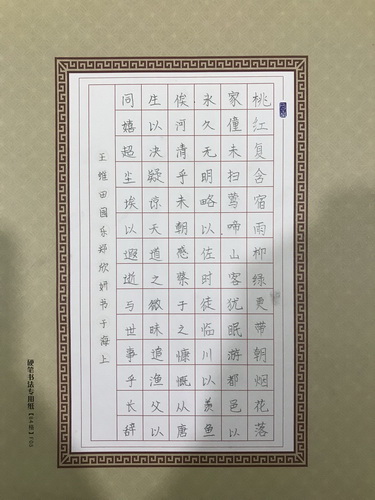 桃红复含宿雨柳绿更带朝烟花落
家僮未扫莺啼山客犹眠游都邑以
永久无明略以佐时徒临川以羡鱼
俟河清乎未期感蔡子之慷慨从唐
生以决疑谅天道之微昧追渔父以
同嬉超尘埃以遐逝与世事乎长辞
王维田园乐郑欣妍书于海上
硬笔书法专用纸【84格】